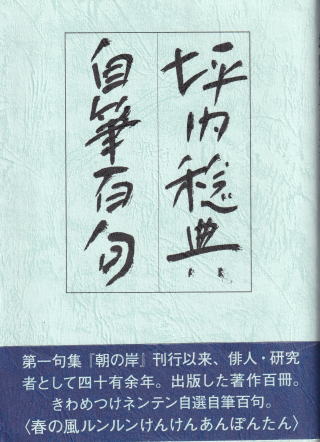 坪内稔典
自筆百句
第一句集『朝の岸』刊行以来、俳人・研究
者として四十有余年。出版した著作百冊。
きわめつけネンテン自選自筆百句。
〈春の風ルンルンけんけんあぽんたん〉